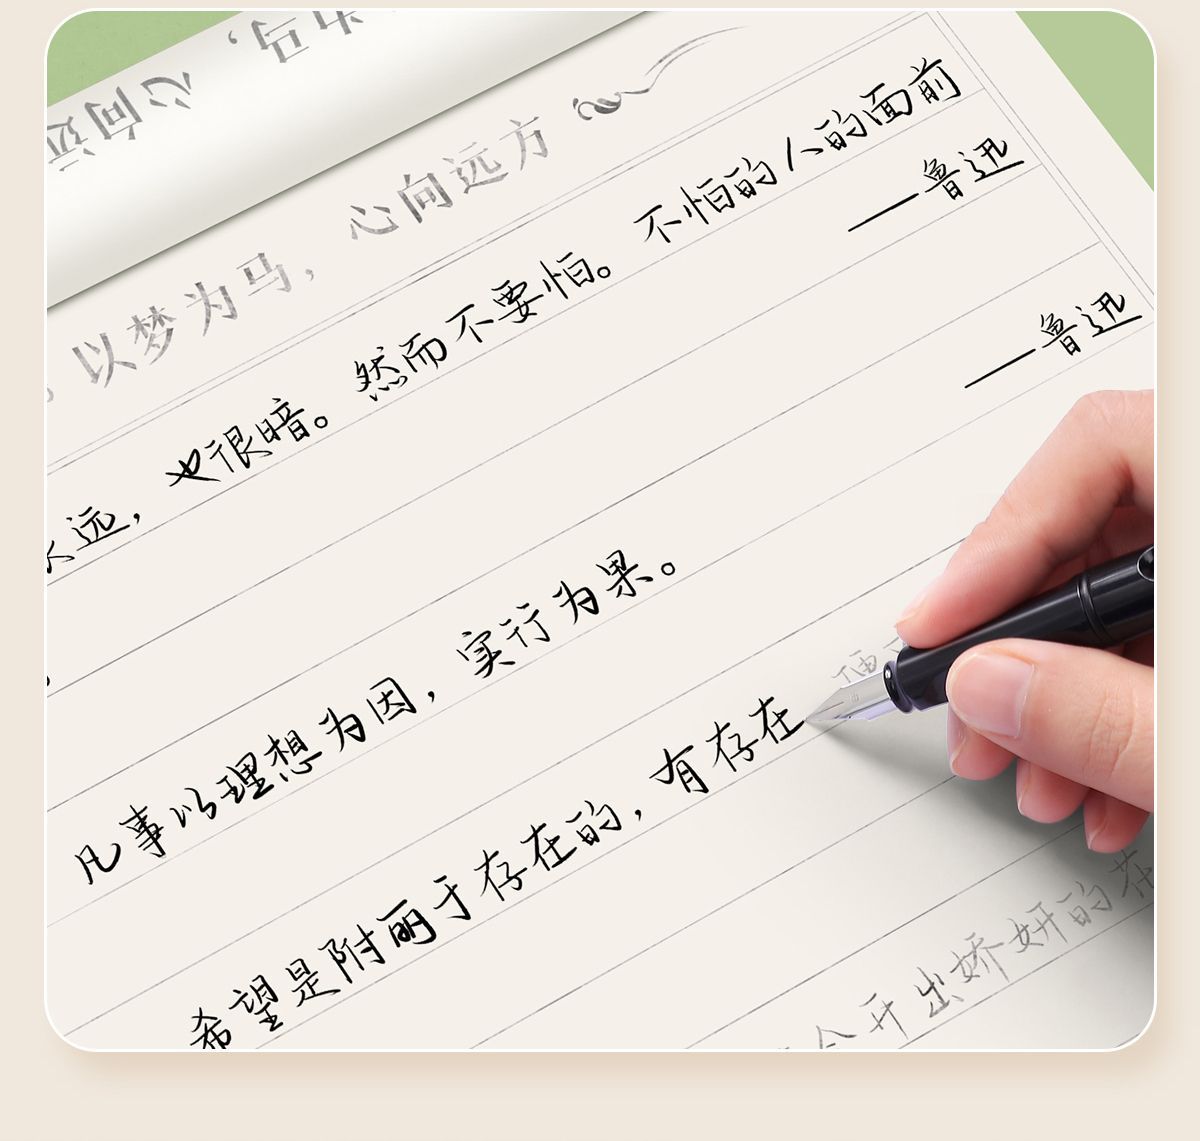 心向远
为马,
以梦为马,心向远方
远,也很暗。然而不要怕。不怕的人的面前
——鲁迅
——鲁迅
凡事以理想为因,实行为果。
希望是附丽于存在的,有存在
会开出娇妍的花